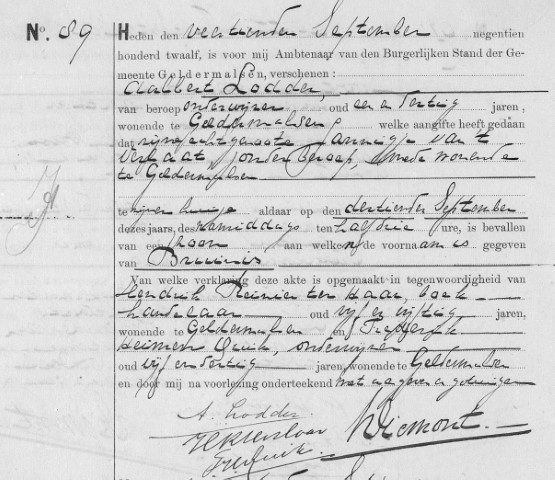 No. 89
Heden den veertienden September negentien
honderd twaalf, is voor mij Ambtenaar van den Burgerlijken Stand der Ge-
meente Geldermalsen, verschenen:
Aalbert Lodder,
van beroep onderwijzer oud een en dertig jaren,
wonende te Geldermalsen, welke aangifte heeft gedaan
dat zijne echtgenoote Annigje van 't
Verlaat, zonder beroep, mede wonende
te Geldermalsen
te zijnen huize aldaar op den dertienden September
dezes jaars, des namiddags ten half drie ure, is bevallen
van een zoon aan welken de voornaam is gegeven
van
Van welke verklaring deze akte is opgemaakt in tegenwoordigheid van
Hendrik Reinier ter Haar, boek-
handelaar oud vijf en vijftig jaren,
wonende te Geldermalsen en Frederik
onderwijzer
oud vijf en dertig jaren, wonende te Geldermalsen
en door mij na voorlezing onderteekend met aangever en getuigen
A. Lodder
HRterHaar